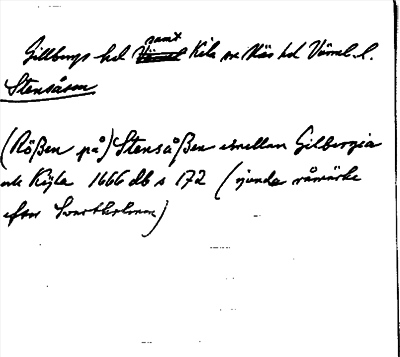 Gillbergs hd samt Kila sn Näs hd Värml. l.
Stensåsen
(Rößen på) Stensåßen emellan Gilbergia
och Kijla 1666 db s 172 (sjunde råmärke
efter Svartholmen)